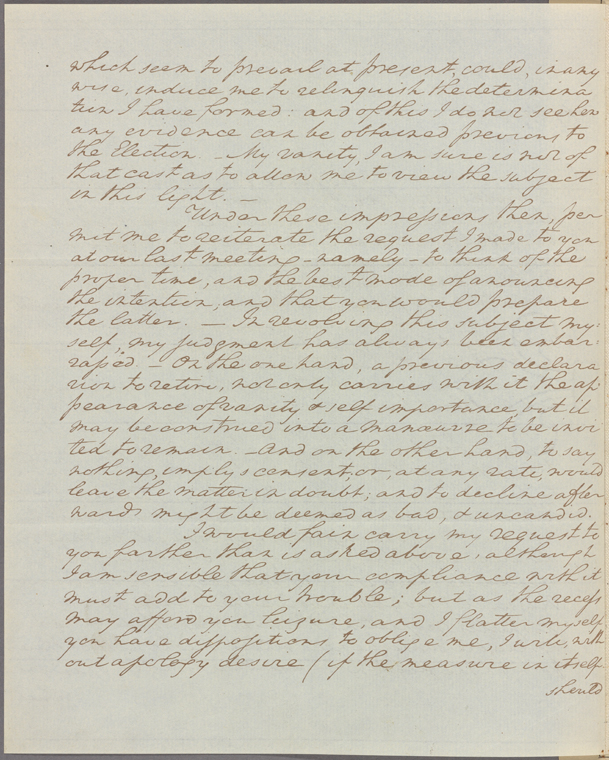 which seem to prevail at present, could, in any
wise, induce me to relinquish the determina
tion I have formed: and of this I do not see how
any evidence can be obtained previous to
the Election. – My vanity, I am sure is not of
that cast as to allow me to view the subject
in this light. –
Under these impressions then, per
mit me to reiterate the request I made to you
at our last meeting – namely – to think of the
proper time, and the best mode of anouncing
the intention; and that you would prepare
the latter. – In revolving this subject my:
self, my judgment has always been embar:
rassed. – On the one hand, a previous declara
tion to retire, not only carries with it the ap
pearance of vanity & self importance, but it
may be construed into a manœuvre to be invi
ted to remain. – And on the other hand, to say
nothing, implys consent; or, at any rate, would
leave the matter in doubt; and to decline after
wards might be deemed as bad, & uncandid.
I would fain carry my request to
you farther than is asked above, although
I am sensible that your compliance with it
must add to your trouble; but as the recess
may afford you leizure, and I flatter myself
you have dispositions to oblige me, I will, with
out apology desire (if the measure in itself
should